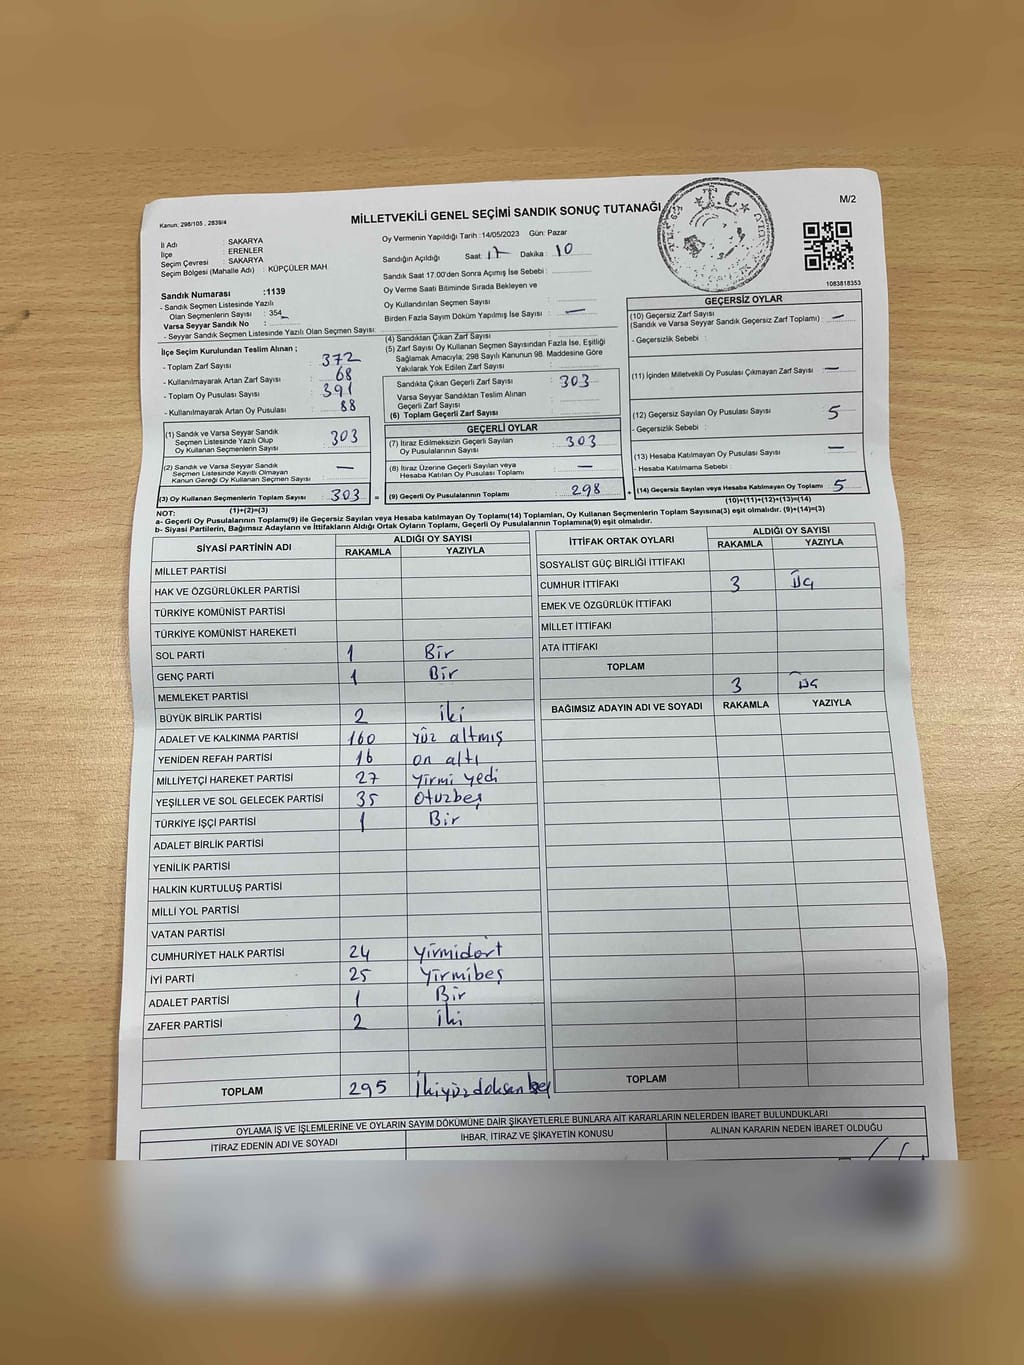 Kanun; 298/105 , 2839/4
MİLLETVEKİLİ GENEL SEÇİMİ SANDIK SONUÇ TUTANAĞI
T.C
M/2
1083818353
İl Adı : SAKARYA
İlçe : ERENLER
Seçim Çevresi : SAKARYA
Seçim Bölgesi (Mahalle Adı) : KÜPÇÜLER MAH
Sandık Numarası :1139
- Sandık Seçmen Listesinde Yazılı
Olan Seçmenlerin Sayısı : 354
Varsa Seyyar Sandık No :
- Seyyar Sandık Seçmen Listesinde Yazılı Olan Seçmen Sayısı:
Oy Vermenin Yapıldığı Tarih :14/05/2023 Gün: Pazar
Sandığın Açıldığı Saat: 17 Dakika : 10
Sandık Saat 17.00'den Sonra Açımış İse Sebebi :
Oy Verme Saati Bitiminde Sırada Bekleyen ve
Oy Kullandırılan Seçmen Sayısı :
Birden Fazla Sayım Döküm Yapılmış İse Sayısı : —
İlçe Seçim Kurulundan Teslim Alınan ;
- Toplam Zarf Sayısı : 372
- Kullanılmayarak Artan Zarf Sayısı : 68
- Toplam Oy Pusulası Sayısı : 391
- Kullanılmayarak Artan Oy Pusulası : 88
(1) Sandık ve Varsa Seyyar Sandık
Seçmen Listesinde Yazılı Olup
Oy Kullanan Seçmenlerin Sayısı : 303
(2) Sandık ve Varsa Seyyar Sandık
Seçmen Listesinde Kayıtlı Olmayan
Kanun Gereği Oy Kullanan Seçmen Sayısı : —
(3) Oy Kullanan Seçmenlerin Toplam Sayısı : 303 =
(1)+(2)=(3)
(4) Sandıktan Çıkan Zarf Sayısı :
(5) Zarf Sayısı Oy Kullanan Seçmen Sayısından Fazla İse, Eşitliği
Sağlamak Amacıyla; 298 Sayılı Kanunun 98. Maddesine Göre
Yakılarak Yok Edilen Zarf Sayısı :
Sandıkta Çıkan Geçerli Zarf Sayısı : 303
Varsa Seyyar Sandıktan Teslim Alınan
Geçerli Zarf Sayısı :
(6) Toplam Geçerli Zarf Sayısı :
GEÇERLİ OYLAR
(7) İtiraz Edilmeksizin Geçerli Sayılan
Oy Pusulalarının Sayısı : 303
(8) İtiraz Üzerine Geçerli Sayılan veya
Hesaba Katılan Oy Pusulası Toplamı : —
(9) Geçerli Oy Pusulalarının Toplamı : 298 +
GEÇERSİZ OYLAR
(10) Geçersiz Zarf Sayısı
(Sandık ve Varsa Seyyar Sandık Geçersiz Zarf Toplamı) : —
- Geçersizlik Sebebi :
(11) İçinden Milletvekili Oy Pusulası Çıkmayan Zarf Sayısı : —
(12) Geçersiz Sayılan Oy Pusulası Sayısı : 5
- Geçersizlik Sebebi :
(13) Hesaba Katılmayan Oy Pusulası Sayısı : —
- Hesaba Katılmama Sebebi :
(14) Geçersiz Sayılan veya Hesaba Katılmayan Oy Toplamı : 5
(10)+(11)+(12)+(13)=(14)
NOT:
a- Geçerli Oy Pusulalarının Toplamı(9) ile Geçersiz Sayılan veya Hesaba katılmayan Oy Toplamı(14) Toplamları, Oy Kullanan Seçmenlerin Toplam Sayısına(3) eşit olmalıdır. (9)+(14)=(3)
b- Siyasi Partilerin, Bağımsız Adayların ve İttifakların Aldığı Ortak Oyların Toplamı, Geçerli Oy Pusulalarının Toplamına(9) eşit olmalıdır.
SİYASİ PARTİNİN ADI ALDIĞI OY SAYISI
RAKAMLA YAZIYLA
MİLLET PARTİSİ
HAK VE ÖZGÜRLÜKLER PARTİSİ
TÜRKİYE KOMÜNİST PARTİSİ
TÜRKİYE KOMÜNİST HAREKETİ
SOL PARTİ 1 Bir
GENÇ PARTİ 1 Bir
MEMLEKET PARTİSİ
BÜYÜK BİRLİK PARTİSİ 2 iki
ADALET VE KALKINMA PARTİSİ 160 yüz altmış
YENİDEN REFAH PARTİSİ 16 on altı
MİLLİYETÇİ HAREKET PARTİSİ 27 yirmi yedi
YEŞİLLER VE SOL GELECEK PARTİSİ 35 otuzbeş
TÜRKİYE İŞÇİ PARTİSİ 1 Bir
ADALET BİRLİK PARTİSİ
YENİLİK PARTİSİ
HALKIN KURTULUŞ PARTİSİ
MİLLİ YOL PARTİSİ
VATAN PARTİSİ
CUMHURİYET HALK PARTİSİ 24 yirmidört
İYİ PARTİ 25 yirmibeş
ADALET PARTİSİ 1 Bir
ZAFER PARTİSİ 2 iki
TOPLAM 295 ikiyüzdoksanbeş
İTTİFAK ORTAK OYLARI ALDIĞI OY SAYISI
RAKAMLA YAZIYLA
SOSYALİST GÜÇ BİRLİĞİ İTTİFAKI
CUMHUR İTTİFAKI 3 üç
EMEK VE ÖZGÜRLÜK İTTİFAKI
MİLLET İTTİFAKI
ATA İTTİFAKI
TOPLAM 3 üç
BAĞIMSIZ ADAYIN ADI VE SOYADI RAKAMLA YAZIYLA
TOPLAM
OYLAMA İŞ VE İŞLEMLERİNE VE OYLARIN SAYIM DÖKÜMÜNE DAİR ŞİKAYETLERLE BUNLARA AİT KARARLARIN NELERDEN İBARET BULUNDUKLARI
İTİRAZ EDENİN ADI VE SOYADI İHBAR, İTİRAZ VE ŞİKAYETİN KONUSU ALINAN KARARIN NEDEN İBARET OLDUĞU